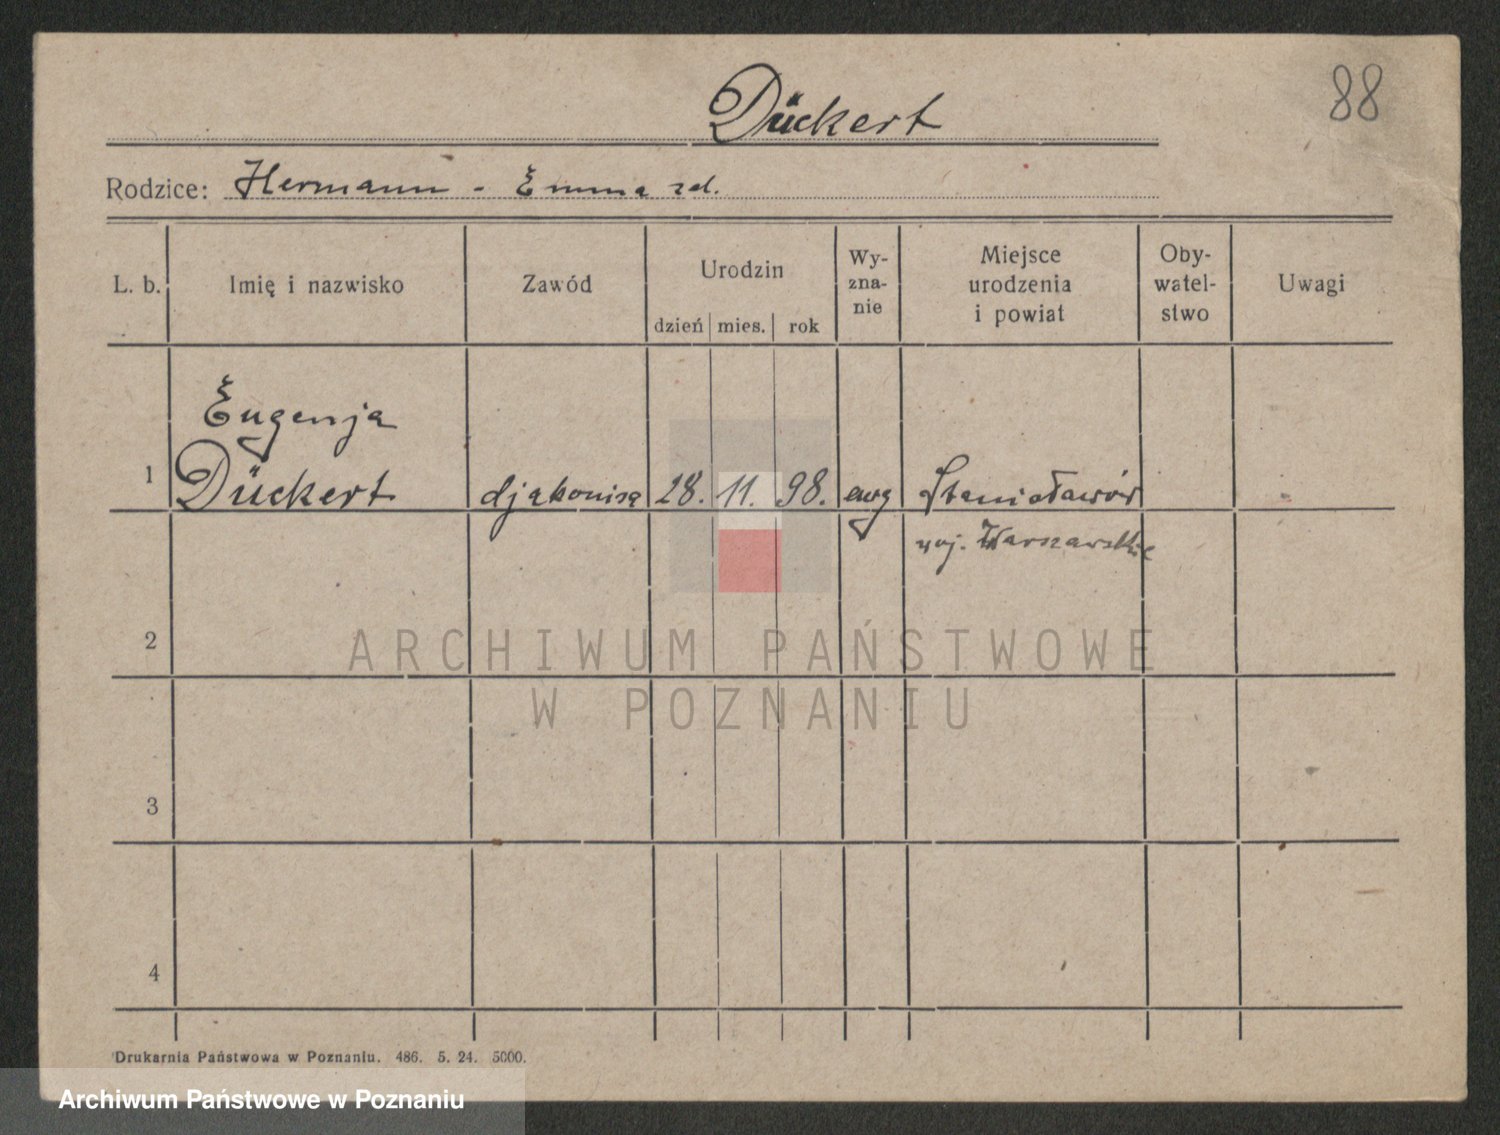 88
Dückert
Rodzice: Hermann - Emma zd.
L. b.
Imię i nazwisko
Zawód
Urodzin
dzień mies. rok
Wy-
zna-
nie
Miejsce
urodzenia
i powiat
Oby-
watel-
stwo
Uwagi
Eugenja
1 Dückert djakonisa 28. 11. 98. ewg Stanisławów
woj. Warszawskie
2
3
4
Drukarnia Państwowa w Poznaniu. 486. 5. 24. 5000.
ARCHIWUM PAŃSTWOWE
W POZNANIU
Archiwum Państwowe w Poznaniu